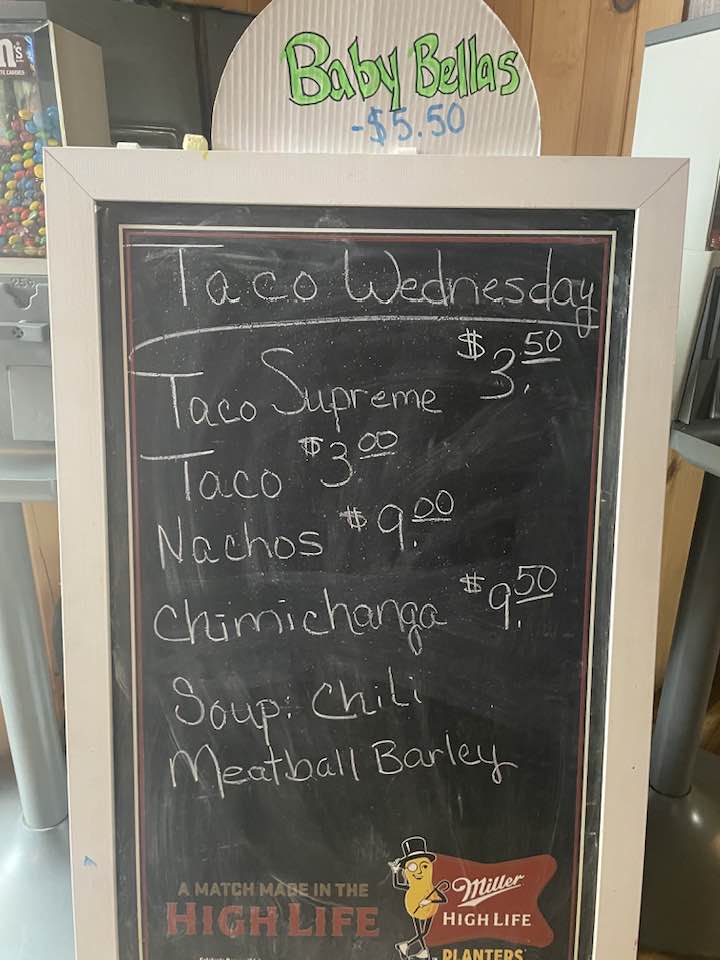 Baby Bellas
-$5.50
Taco Wednesday
Taco Supreme $3.50
Taco $3.00
Nachos $9.00
Chimichanga $9.50
Soup: Chili
Meatball Barley
A MATCH MADE IN THE
HIGH LIFE
Miller
HIGH LIFE
PLANTERS
25¢